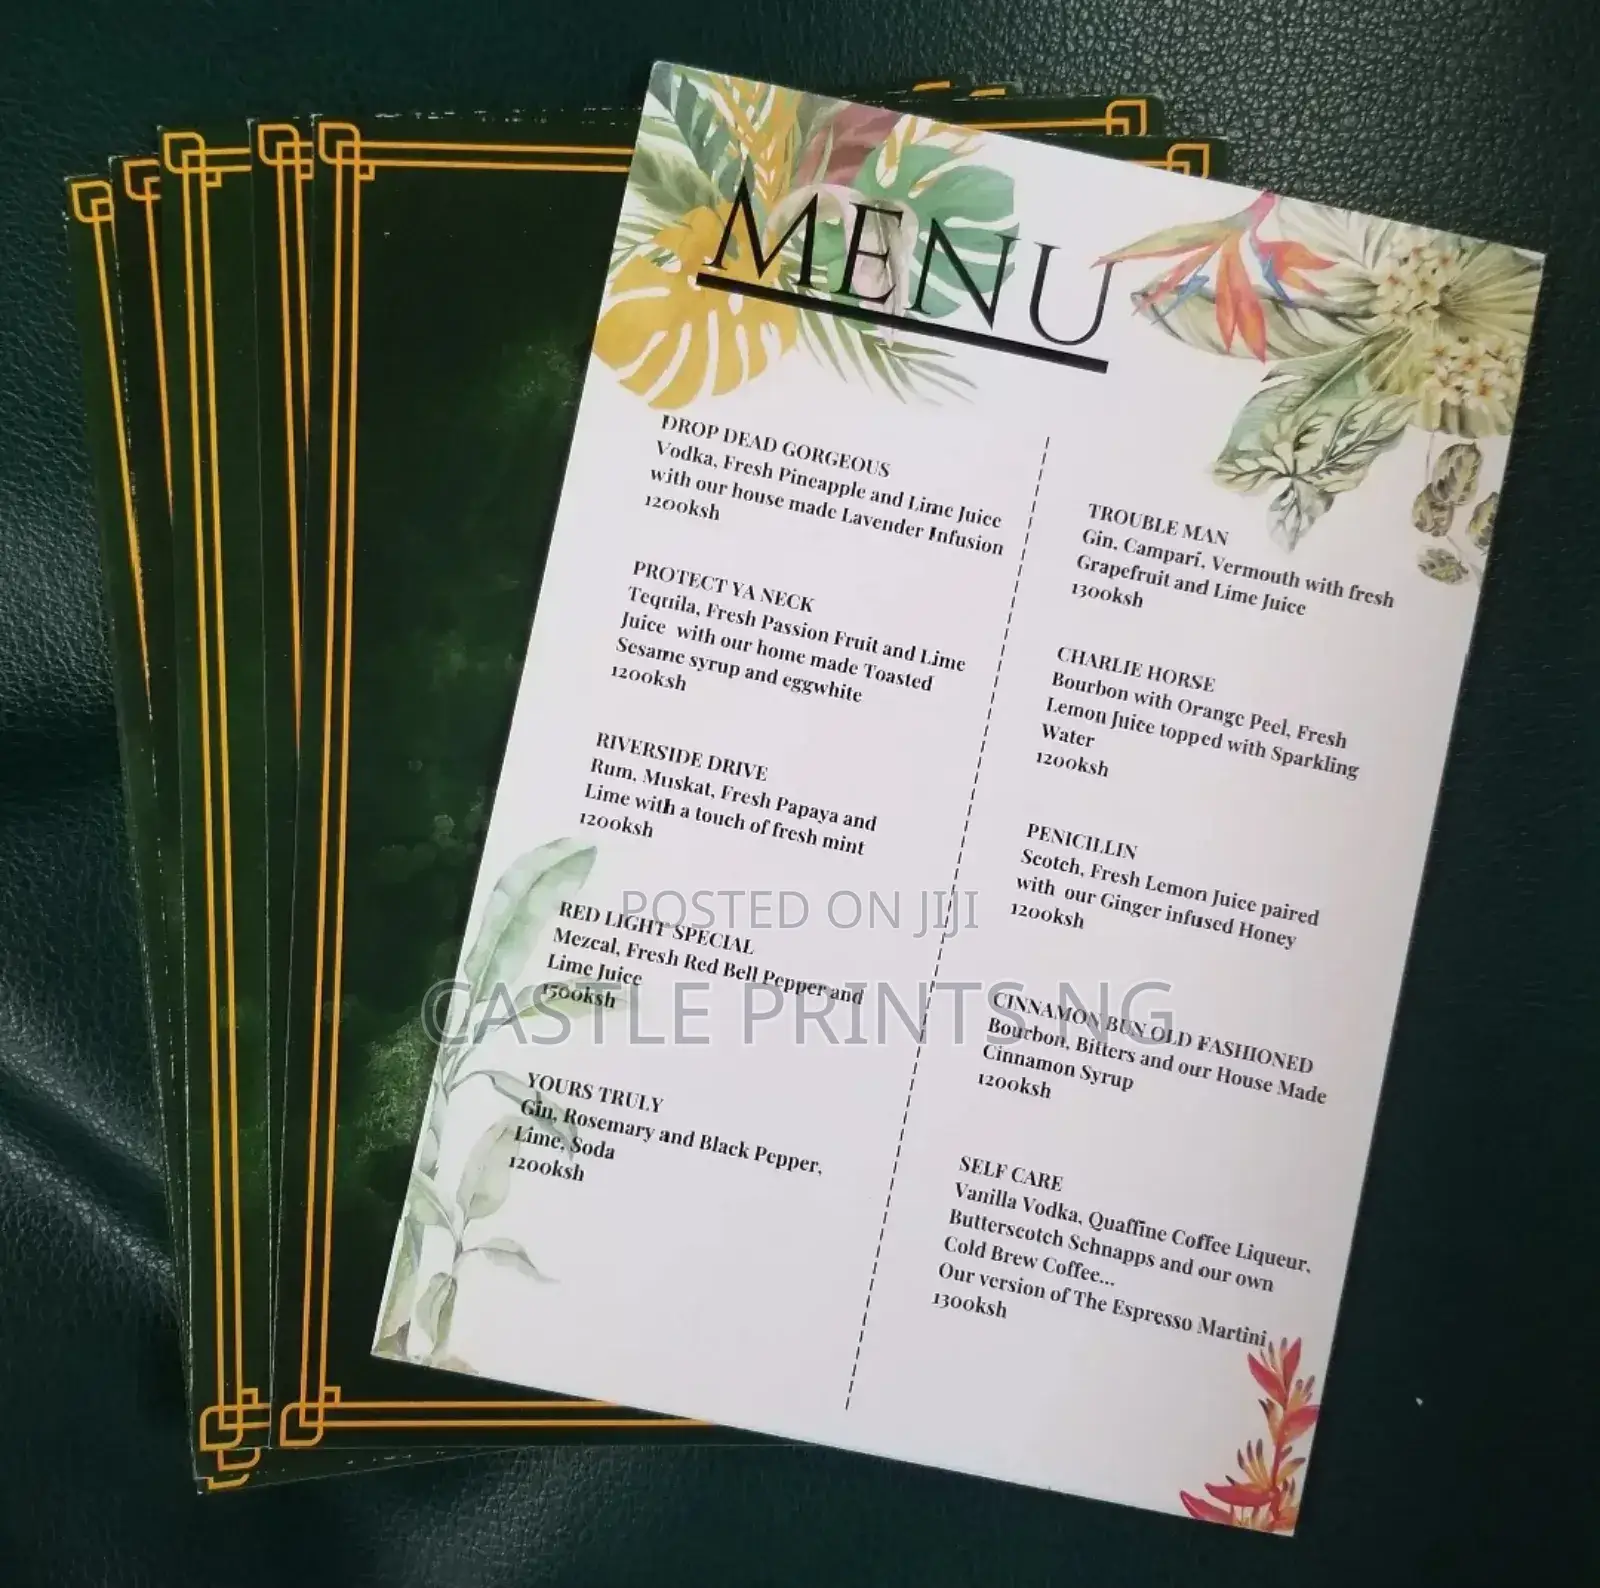 MENU
DROP DEAD GORGEOUS
Vodka, Fresh Pineapple and Lime Juice
with our house made Lavender Infusion
1200ksh
PROTECT YA NECK
Tequila, Fresh Passion Fruit and Lime
Juice with our home made Toasted
Sesame syrup and eggwhite
1200ksh
RIVERSIDE DRIVE
Rum, Muskat, Fresh Papaya and
Lime with a touch of fresh mint
1200ksh
RED LIGHT SPECIAL
Mezcal, Fresh Red Bell Pepper and
Lime Juice
1500ksh
YOURS TRULY
Gin, Rosemary and Black Pepper,
Lime, Soda
1200ksh
TROUBLE MAN
Gin, Campari, Vermouth with fresh
Grapefruit and Lime Juice
1300ksh
CHARLIE HORSE
Bourbon with Orange Peel, Fresh
Lemon Juice topped with Sparkling
Water
1200ksh
PENICILLIN
Scotch, Fresh Lemon Juice paired
with our Ginger infused Honey
1200ksh
CINNAMON BUN OLD FASHIONED
Bourbon, Bitters and our House Made
Cinnamon Syrup
1200ksh
SELF CARE
Vanilla Vodka, Quaffine Coffee Liqueur,
Butterscotch Schnapps and our own
Cold Brew Coffee...
Our version of The Espresso Martini
1300ksh
POSTED ON JIJI
CASTLE PRINTS NG